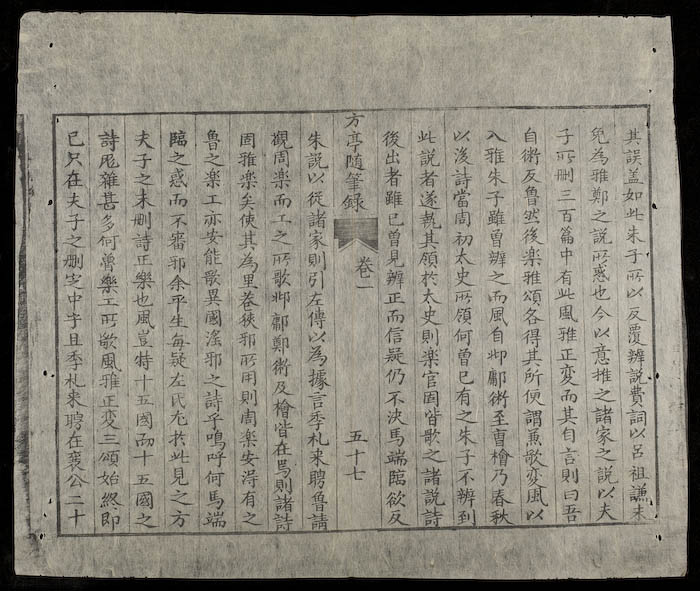 其誤盖如此朱子所以反覆辨說費詞以呂祖謙未
免為雅鄭之說所惑也今以意推之諸家之說以夫
子所刪三百篇中有此風雅正変而其自言則曰吾
自衛反魯然後楽雅頌各得其所便謂兼歌変風以
入雅朱子雖曾辨之而風自邶鄘衛至曹檜乃春秋
以後詩當周初太史所領何曾已有之朱子不辨到
此說者遂執其領於太史則楽官固皆歌之諸說詩
後出者雖已曾見辨正而信疑仍不決馬端臨欲反
方亭隨筆錄 卷二 五十七
朱說以従諸家則引左傳以為據言季札来聘魯請
觀周楽而工之所歌邶鄘鄭衛及檜皆在焉則諸詩
固雅楽矣使其為里巷狹邪所用則周楽安淂有之
魯之楽工亦安能歌異國滛邪之詩乎嗚呼何馬端
臨之惑而不審邪余平生每疑左氏尤於此見之方
夫子之未刪詩正樂也風豈特十五國而十五國之
詩厖雜甚多何魯樂工所歌風雅正変三頌始終即
已只在夫子之刪定中乎且季札来聘在襄公二十